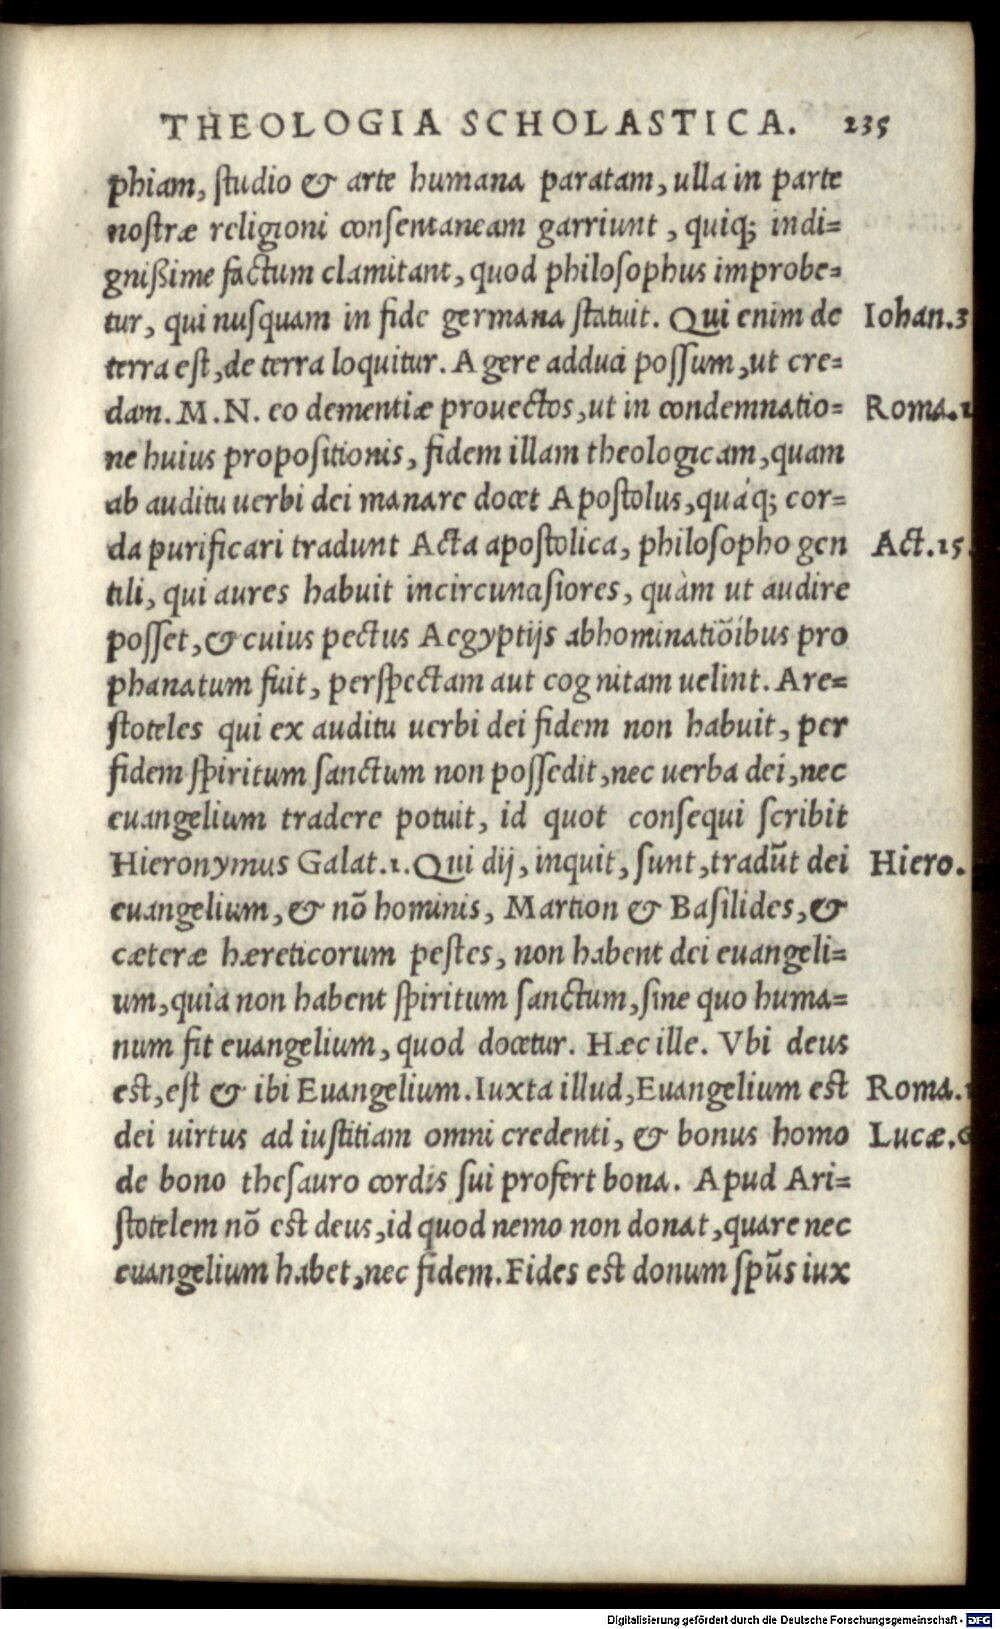 THEOLOGIA SCHOLASTICA. 235
phiam, studio & arte humana paratam, ulla in parte
nostræ religioni consentaneam garriunt, quiq; indi=
gnißime factum clamitant, quod philosophus improbe=
tur, qui nusquam in fide germana statuit. Qui enim de Iohan.3
terra est, de terra loquitur. Agere adduci possum, ut cre=
dam. M. N. eo dementiæ prouectos, ut in condemnatio= Roma.1
ne huius propositionis, fidem illam theologicam, quam
ab auditu uerbi dei manare docet Apostolus, quáq; cor=
da purificari tradunt Acta apostolica, philosopho gen Act.15.
tili, qui aures habuit incircuncisiores, quàm ut audire
posset, & cuius pectus Aegyptijs abhominatiõibus pro
phanatum fuit, perspectam aut cognitam uelint. Are=
stoteles qui ex auditu uerbi dei fidem non habuit, per
fidem spiritum sanctum non possedit, nec uerba dei, nec
euangelium tradere potuit, id quot consequi scribit
Hieronymus Galat.1. Qui dij, inquit, sunt, tradũt dei Hiero.
euangelium, & nõ hominis, Martion & Basilides, &
cæteræ hæreticorum pestes, non habent dei euangeli=
um, quia non habent spiritum sanctum, sine quo huma=
num fit euangelium, quod docetur. Hæc ille. Vbi deus
est, est & ibi Euangelium. Iuxta illud, Euangelium est Roma.1
dei uirtus ad iustitiam omni credenti, & bonus homo Lucæ.6
de bono thesauro cordis sui profert bona. Apud Ari=
stotelem nõ est deus, id quod nemo non donat, quare nec
euangelium habet, nec fidem. Fides est donum spũs iux
Digitalisierung gefördert durch die Deutsche Forschungsgemeinschaft - DFG